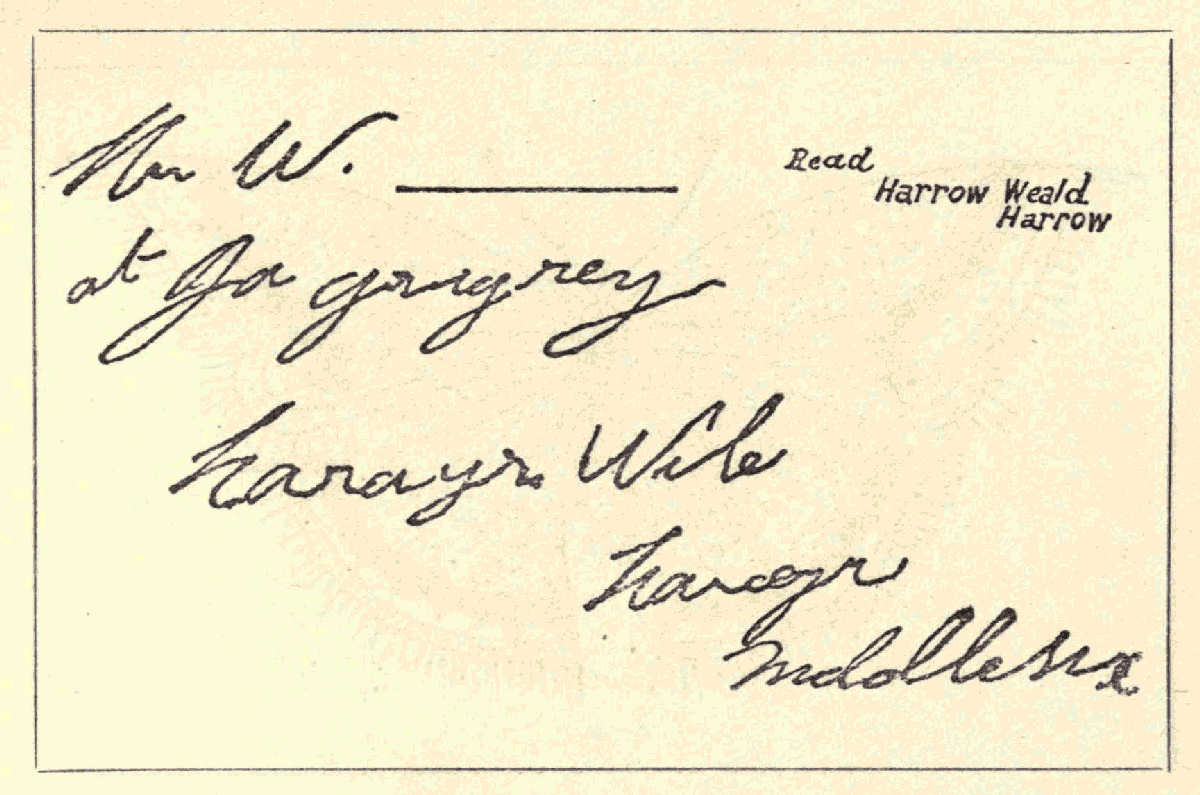 Mr W.
Read
Harrow Weald
Harrow
at Jo grugrey
harayr. Wile
harayr
Mdollesex